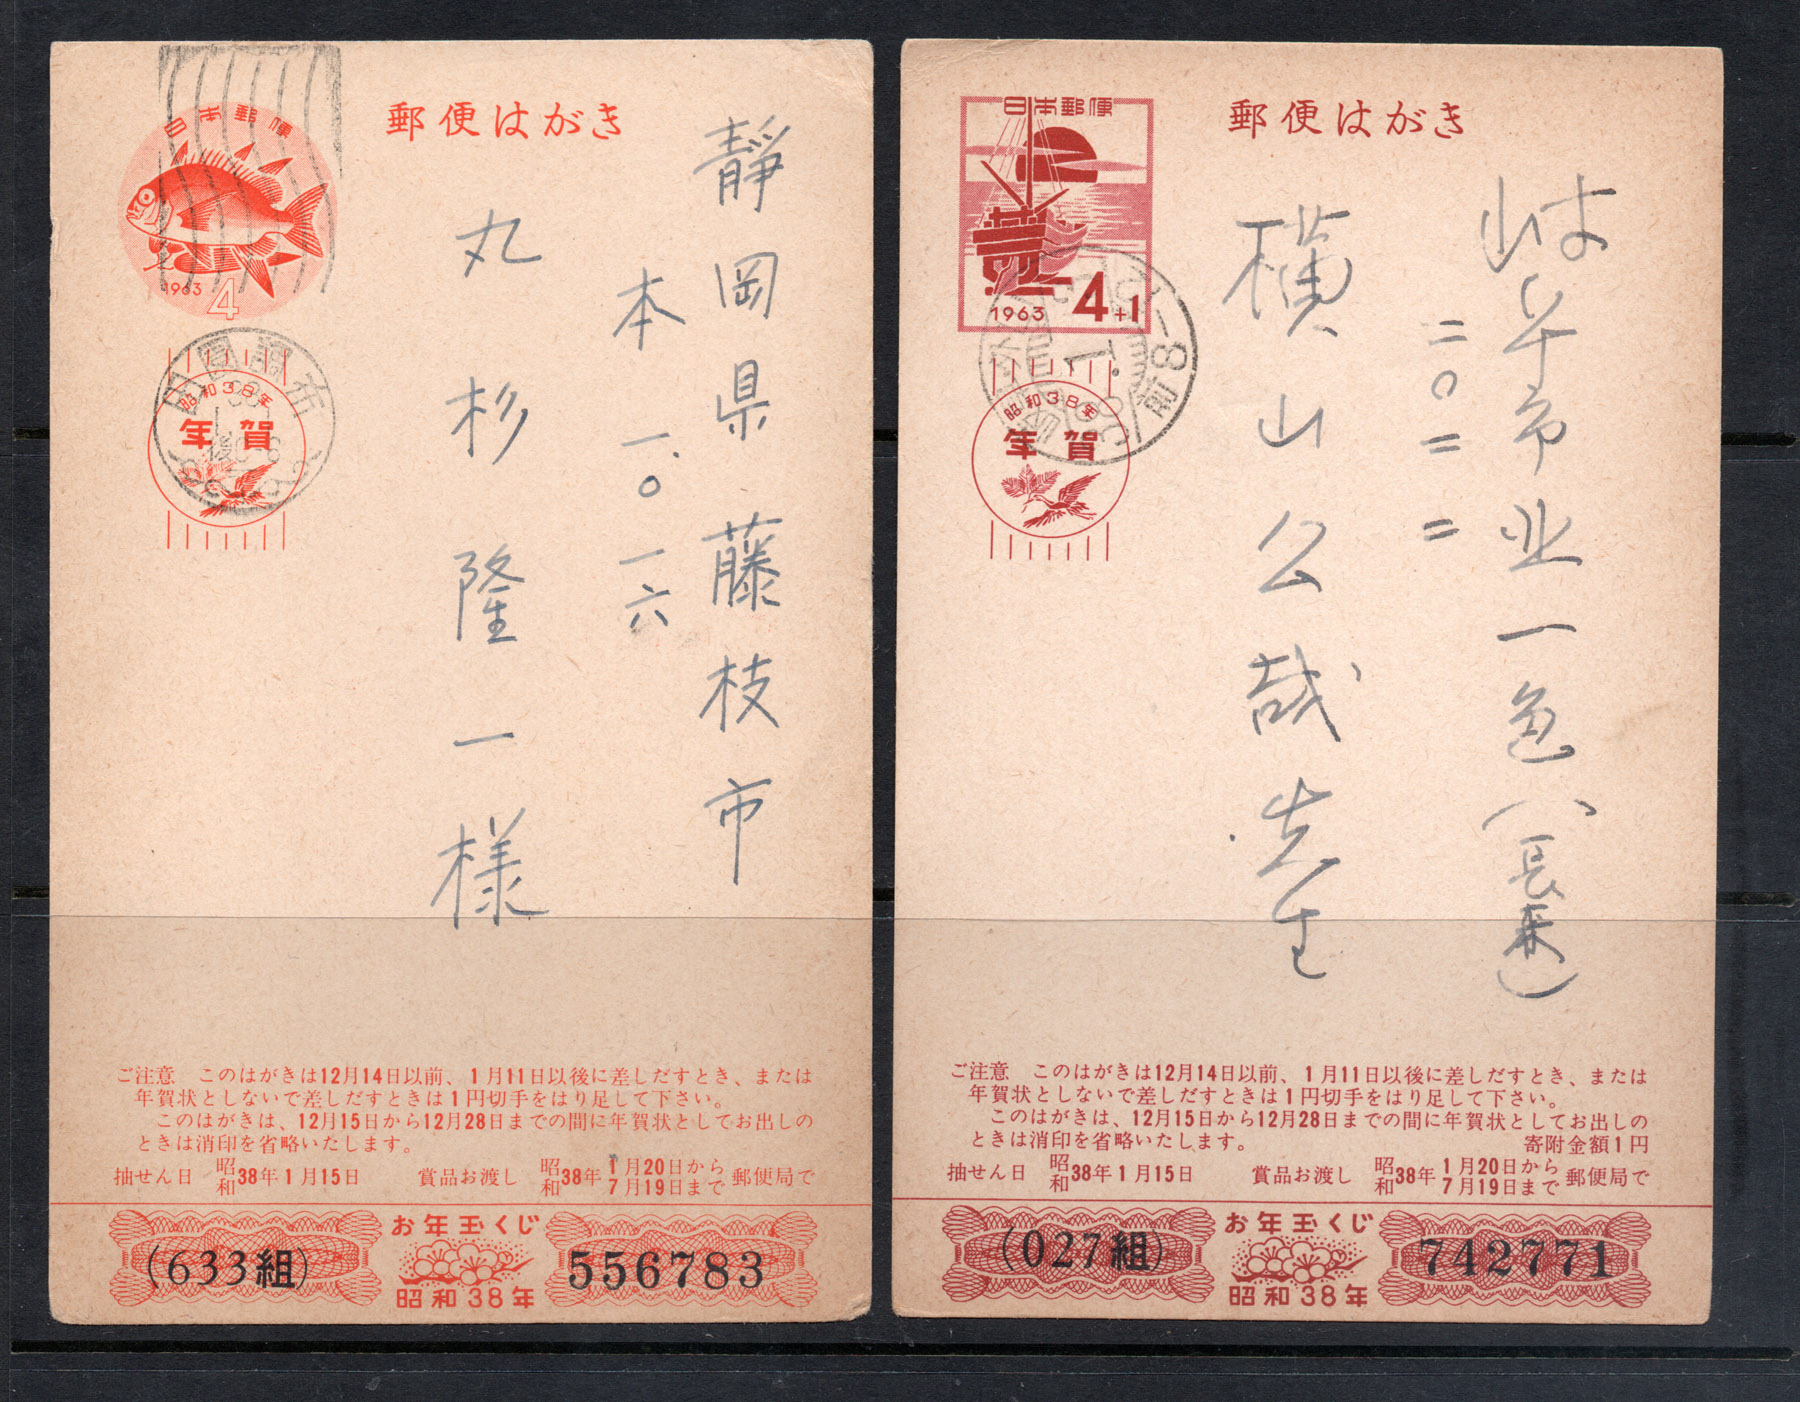 日本郵便
1963
4
郵便はがき
昭和38年
年賀
静岡県藤枝市
本一、〇一六
丸杉隆一様
ご注意 このはがきは12月14日以前、1月11日以後に差しだすとき、または
年賀状としないで差しだすときは1円切手をはり足して下さい。
このはがきは、12月15日から12月28日までの間に年賀状としてお出しの
ときは消印を省略いたします。
抽せん日 昭和38年1月15日 賞品お渡し 昭和38年1月20日から7月19日まで郵便局で
(633組)
お年玉くじ
昭和38年
556783
日本郵便
1963
4+1
郵便はがき
前8-
昭和38年
年賀
岐阜市北一色(長森)
二〇二二
横山公哉先生
ご注意 このはがきは12月14日以前、1月11日以後に差しだすとき、または
年賀状としないで差しだすときは1円切手をはり足して下さい。
このはがきは、12月15日から12月28日までの間に年賀状としてお出しの
ときは消印を省略いたします。 寄附金額1円
抽せん日 昭和38年1月15日 賞品お渡し 昭和38年1月20日から7月19日まで郵便局で
(027組)
お年玉くじ
昭和38年
742771